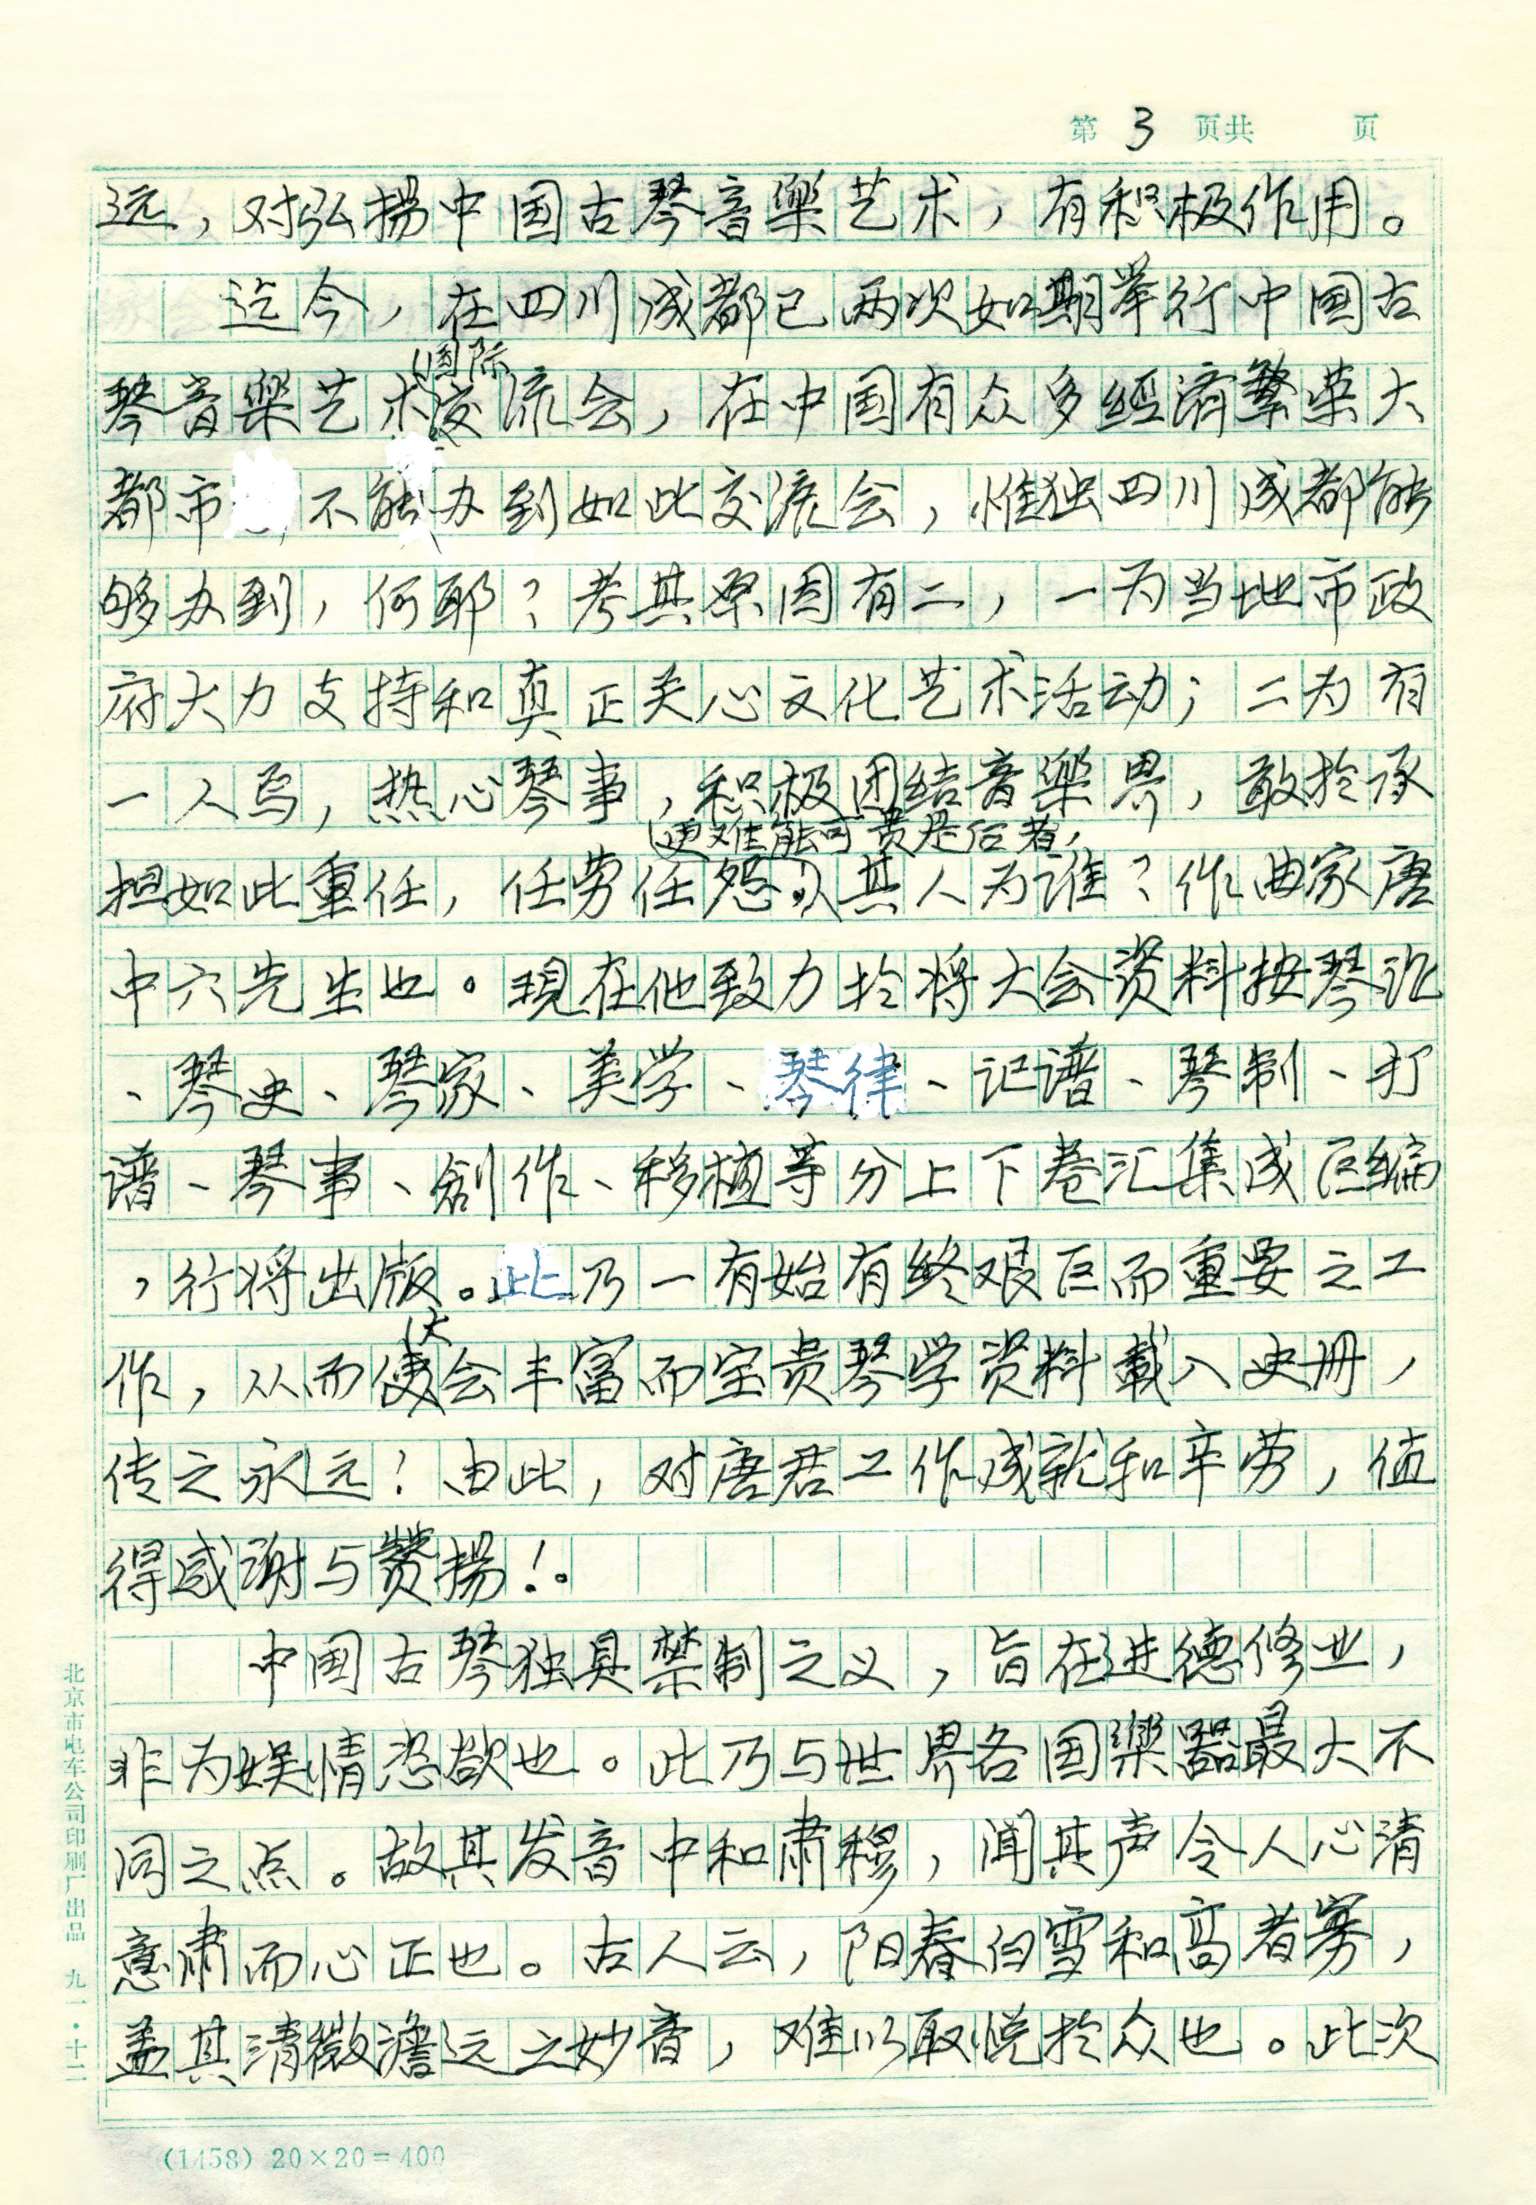 第 3 页共 页
远，对弘揚中国古琴音樂艺术，有积极作用。
迄今，在四川成都已两次如期举行中国古
国际
琴音樂艺术交流会，在中国有众多经濟繁荣大
都市不能办到如此交流会，惟独四川成都能
够办到，何耶？考其原因有二，一为当地市政
府大力支持和真正关心文化艺术活动；二为有
一人焉，热心琴事，积极团结音樂界，敢於承
更难能可贵是后者，
担如此重任，任劳任怨。其人为谁？作曲家唐
中六先生也。現在他致力於将大会资料按琴论
、琴史、琴家、美学、琴律、记谱、琴制、打
谱、琴事、創作、移植等分上下卷汇集成巨编
，行将出版。此乃一有始有终艰巨而重要之工
大
作，从而使会丰富而宝贵琴学资料載入史册，
传之永远！由此，对唐君工作成就和辛劳，值
得感谢与赞揚！
中国古琴独具禁制之义，旨在进德修业，
非为娱情恣欲也。此乃与世界各国樂器最大不
同之点。故其发音中和肃穆，闻其声令人心清
意肃而心正也。古人云，阳春白雪和高者寡，
盖其清微澹远之妙音，难以取悦於众也。此次
北京市电车公司印刷厂出品 九一·十二
(1458) 20×20=400